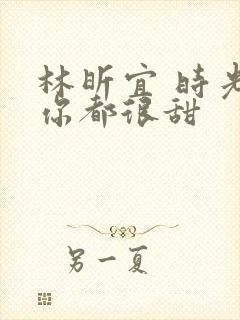 林昕宜 時光
你都很甜
另一夏